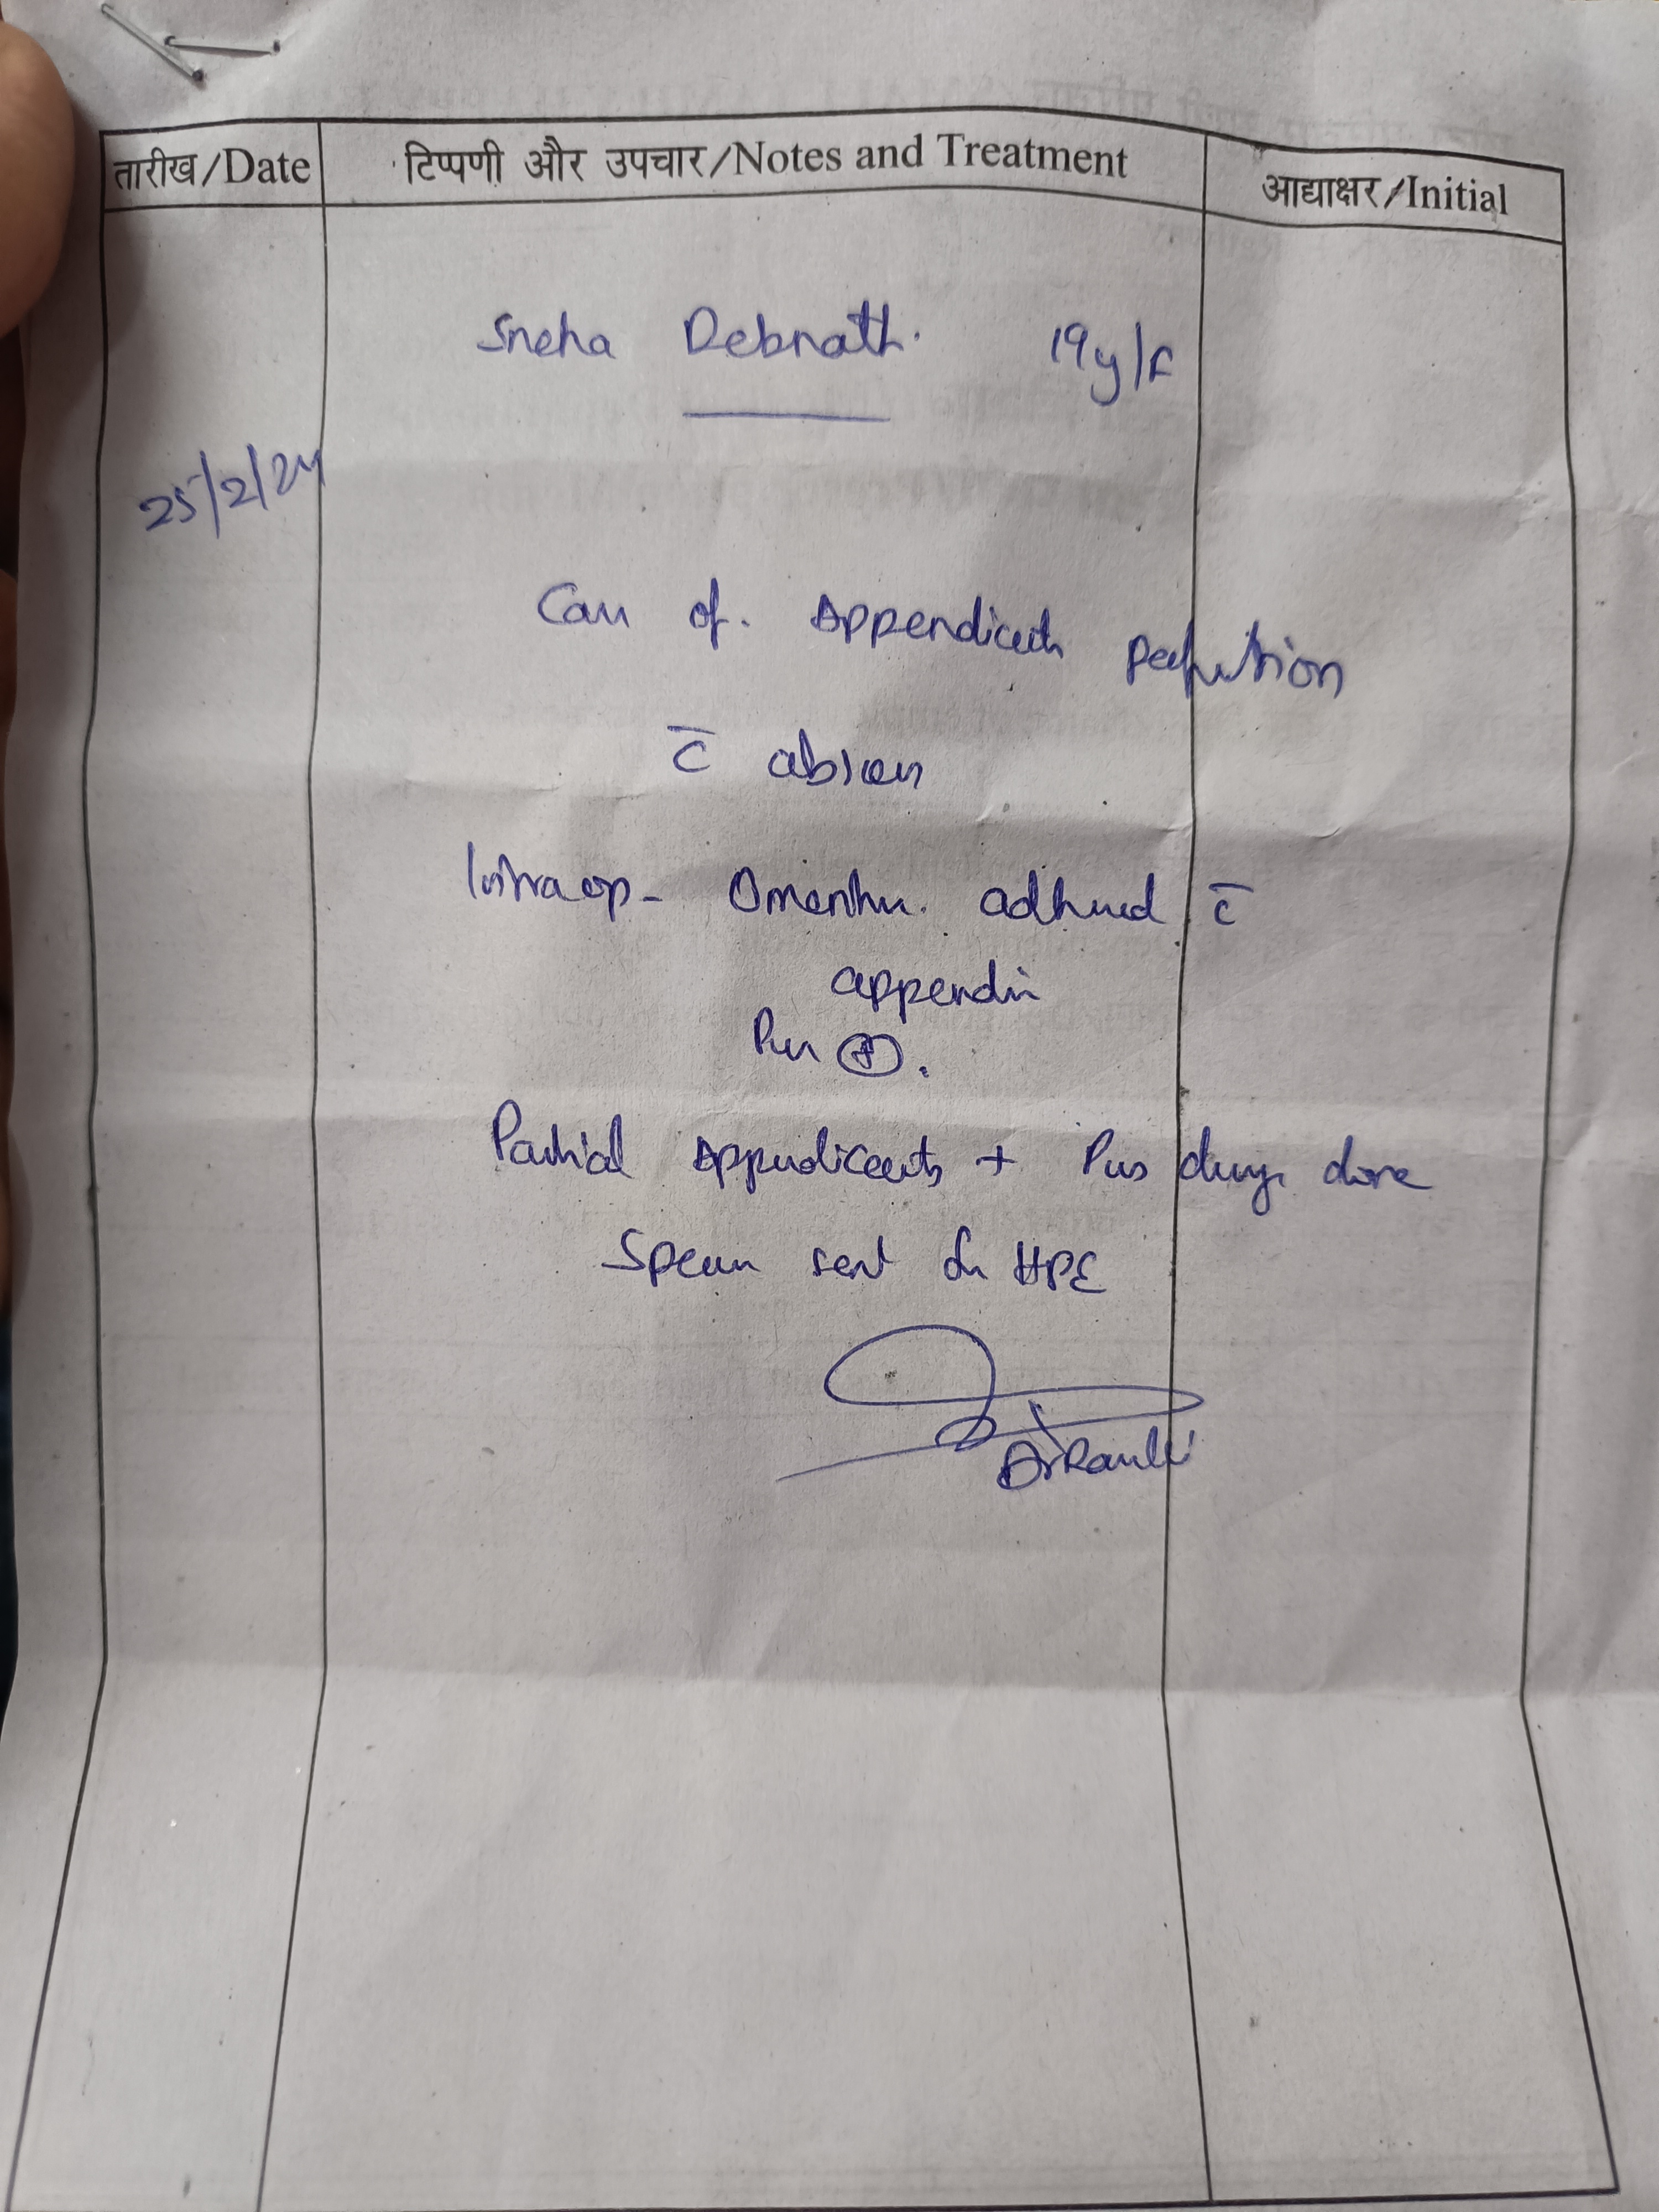 तारीख/Date टिप्पणी और उपचार/Notes and Treatment आद्याक्षर/Initial
Sneha Debnath. 19y/F
25/2/24
Case of. Appendicitis perforation
c̄ abscess
Intraop- Omentum. adhered c̄
appendix
Pus ⊕.
Partial Appendicectomy + Pus drainage done
Specimen sent for HPE